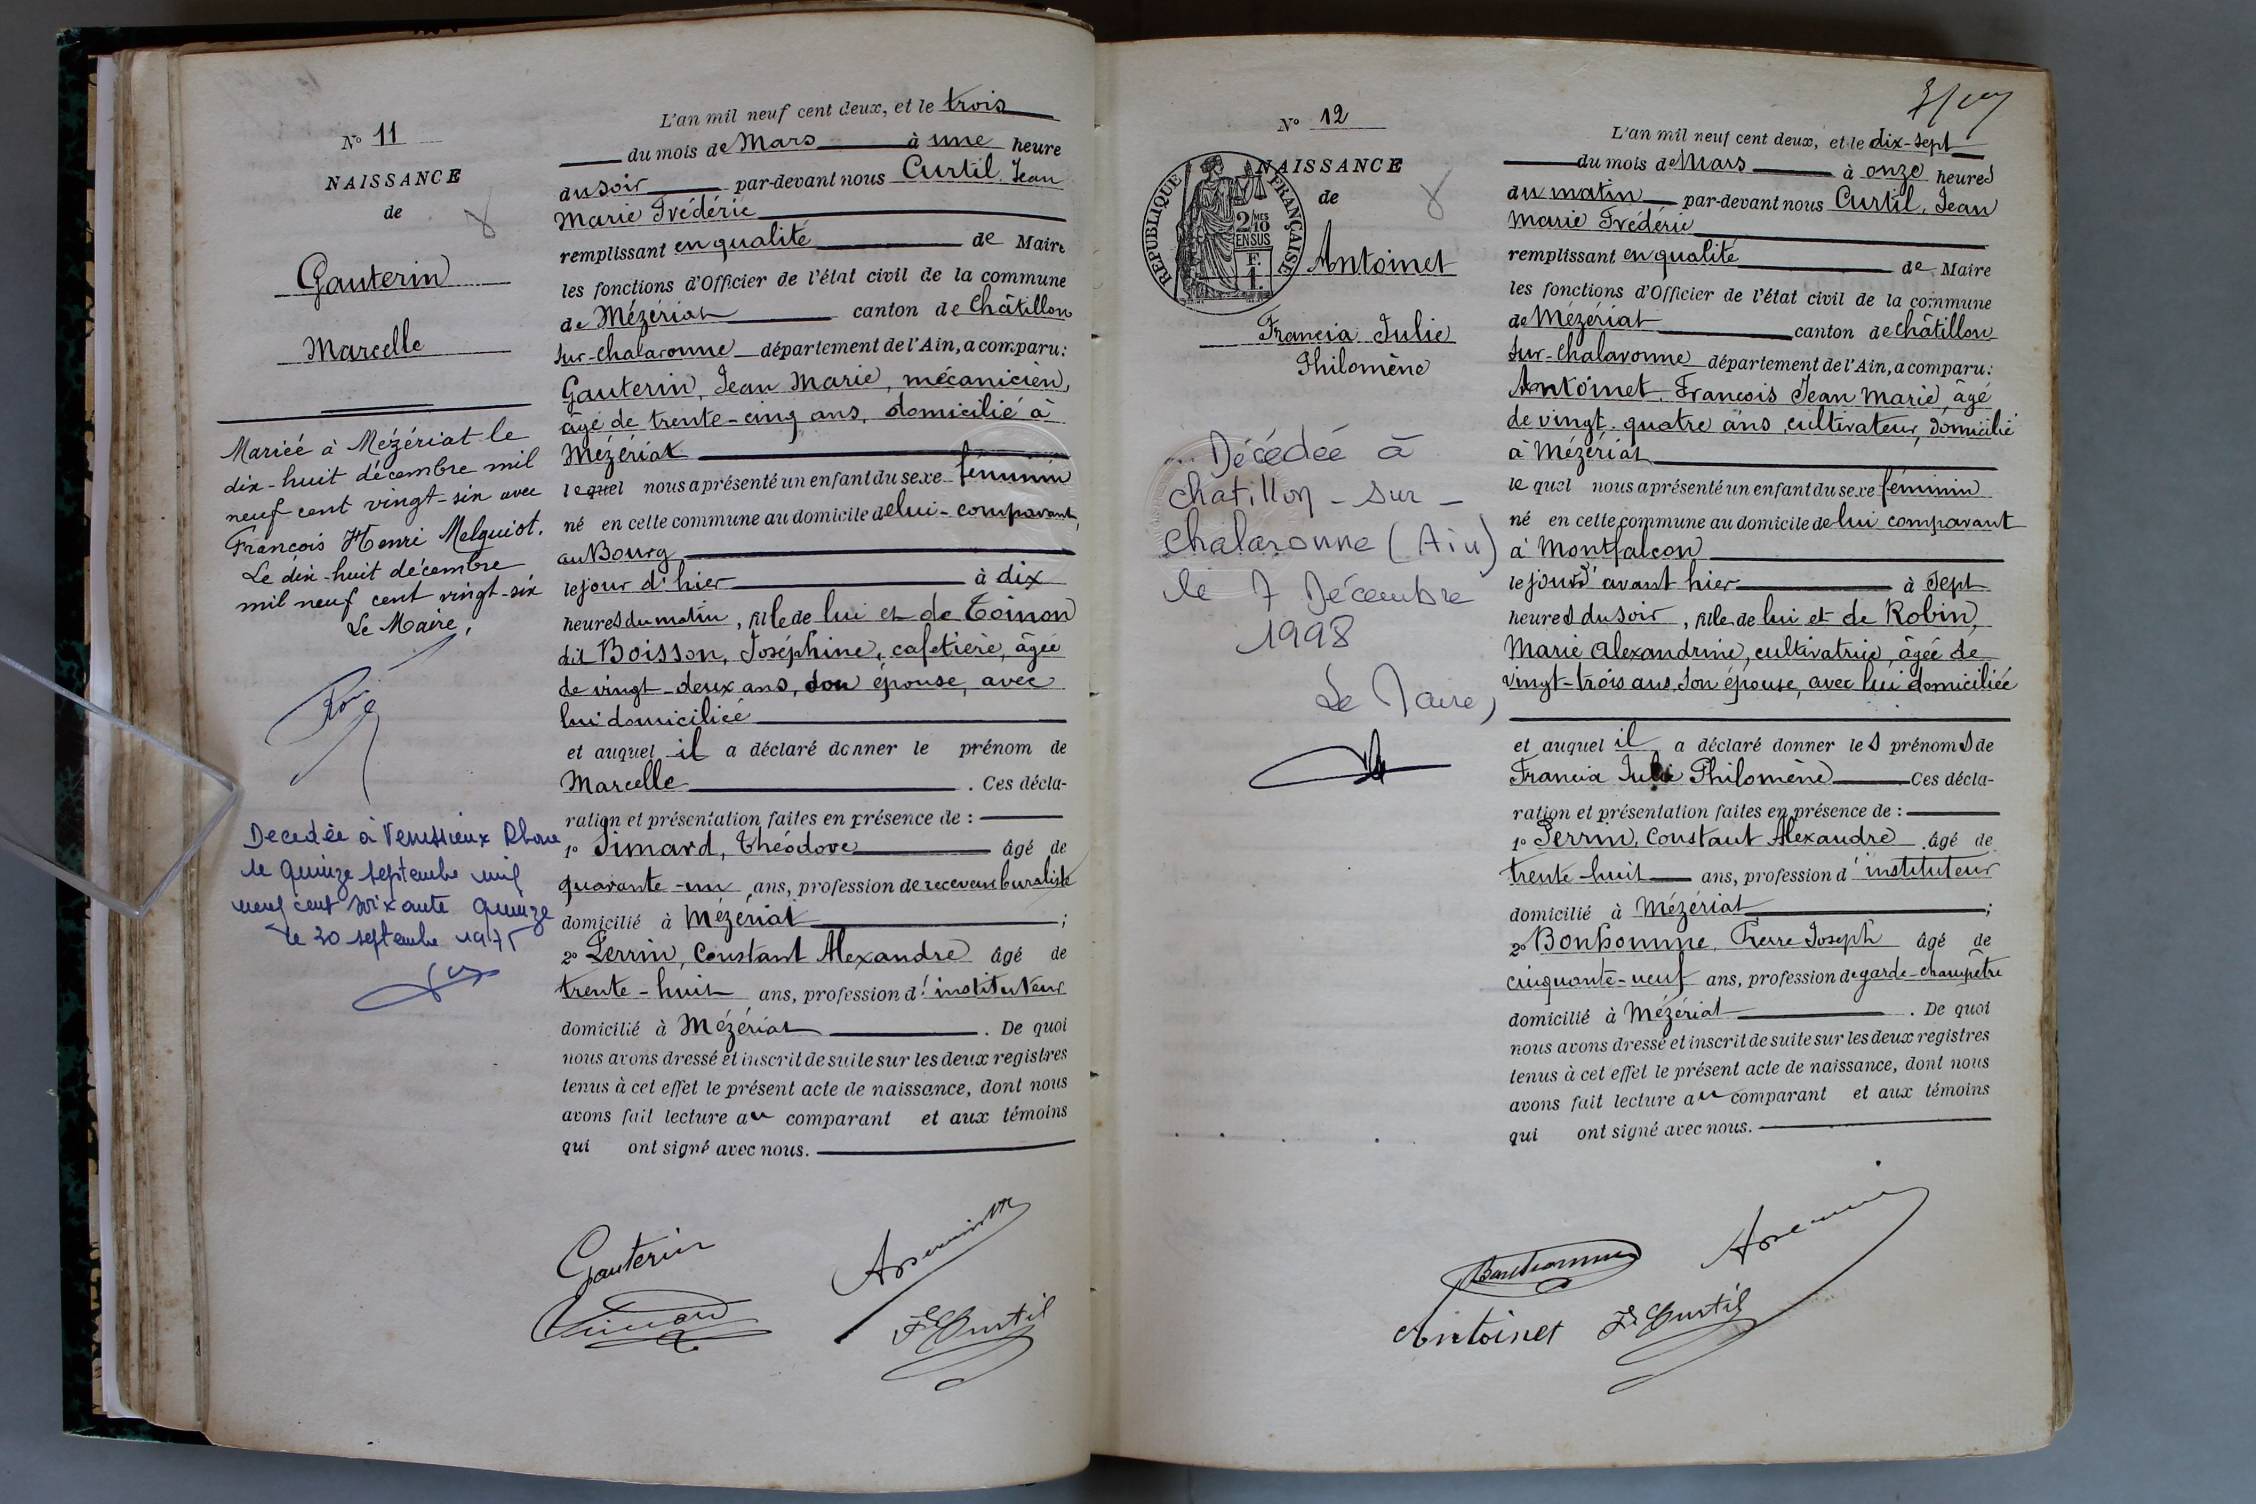 N° 11
NAISSANCE
de
Gauterin
Marcelle
Mariée à Mézériat le
dix-huit décembre mil
neuf cent vingt-six avec
François Henri Melquiot.
Le dix-huit décembre
mil neuf cent vingt-six
Le Maire,
Decedée à Venissieux Rhone
le quinze septembre mil
neuf cent soixante quinze
le 20 septembre 1975
L'an mil neuf cent deux, et le trois
du mois de Mars à une heure
du soir par-devant nous Curtil, Jean
Marie Frédéric
remplissant en qualité de Maire
les fonctions d'Officier de l'état civil de la commune
de Mézériat canton de Châtillon
sur-Chalaronne département de l'Ain, a comparu:
Gauterin, Jean Marie, mécanicien,
âgé de trente-cinq ans, domicilié à
Mézériat
lequel nous a présenté un enfant du sexe féminin
né en cette commune au domicile de lui-comparant,
au Bourg
le jour d'hier à dix
heures du matin, fille de lui et de Toinon
dit Boisson, Joséphine, cafetière, âgée
de vingt-deux ans, son épouse, avec
lui domiciliée
et auquel il a déclaré donner le prénom de
Marcelle . Ces décla-
ration et présentation faites en présence de :
1° Simard, Théodore âgé de
quarante-un ans, profession de receveur buraliste
domicilié à Mézériat ;
2° Perrin, Constant Alexandre âgé de
trente-huit ans, profession d'instituteur
domicilié à Mézériat . De quoi
nous avons dressé et inscrit de suite sur les deux registres
tenus à cet effet le présent acte de naissance, dont nous
avons fait lecture au comparant et aux témoins
qui ont signé avec nous.
Gauterin
Curtil
N° 12
NAISSANCE
de
RÉPUBLIQUE FRANÇAISE
2/10 MES
EN SUS
F.
1.
Antoinet
Francia Julie
Philomène
Décédée à
Chatillon-sur-
Chalaronne (Ain)
le 7 Décembre
1998
Le Maire,
L'an mil neuf cent deux, et le dix-sept
du mois de Mars à onze heures
du matin par-devant nous Curtil, Jean
Marie Frédéric
remplissant en qualité de Maire
les fonctions d'Officier de l'état civil de la commune
de Mézériat canton de Châtillon
sur-Chalaronne département de l'Ain, a comparu:
Antoinet, François Jean Marie, âgé
de vingt-quatre ans, cultivateur, domicilié
à Mézériat
lequel nous a présenté un enfant du sexe féminin
né en cette commune au domicile de lui comparant
à Montfalcon
le jour d'avant hier à sept
heures du soir, fille de lui et de Robin,
Marie Alexandrine, cultivatrice, âgée de
vingt-trois ans, son épouse, avec lui domiciliée
et auquel il a déclaré donner les prénoms de
Francia Julie Philomène Ces décla-
ration et présentation faites en présence de :
1° Perrin, Constant Alexandre âgé de
trente-huit ans, profession d'instituteur
domicilié à Mézériat ;
2° Bonhomme, Pierre Joseph âgé de
cinquante-neuf ans, profession de garde-champêtre
domicilié à Mézériat . De quoi
nous avons dressé et inscrit de suite sur les deux registres
tenus à cet effet le présent acte de naissance, dont nous
avons fait lecture au comparant et aux témoins
qui ont signé avec nous.
Bonhomme
Antoinet Curtil